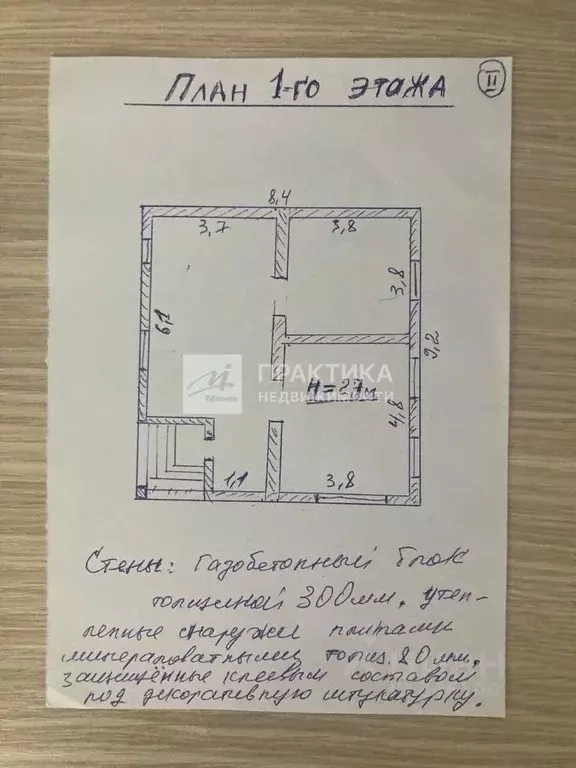 План 1-го этажа
II
8,4
3,7 3,8
3,8
6,1
9,2
Mielь
ПРАКТИКА
НЕДВИЖИМОСТИ
H=2,7м
4,8
1,1 3,8
Стены: Газобетонный блок
толщиной 300мм, утеп-
ленные снаружи плитами
минераловатными толщ. 80мм,
защищённые клеевым составом
под декоративную штукатурку.